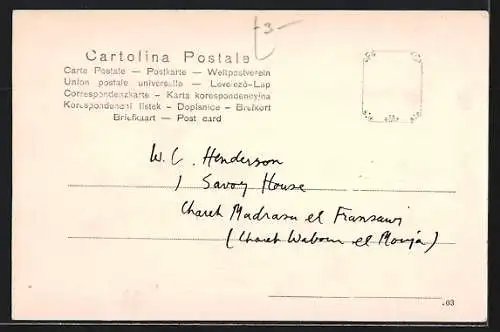 £3-
Cartolina Postale
Carte Postale — Postkarte — Weltpostverein
Union postale universelle — Levelező-Lap
Correspondenzkarte — Karta korespondencyjna
Korespondenční lístek — Dopisnice — Brefkort
Briefkaart — Post card
W. C. Henderson
1 Savoy House
Chareh Madrasa el Fransawi
(Chareh Wabour el Mouja)
.03